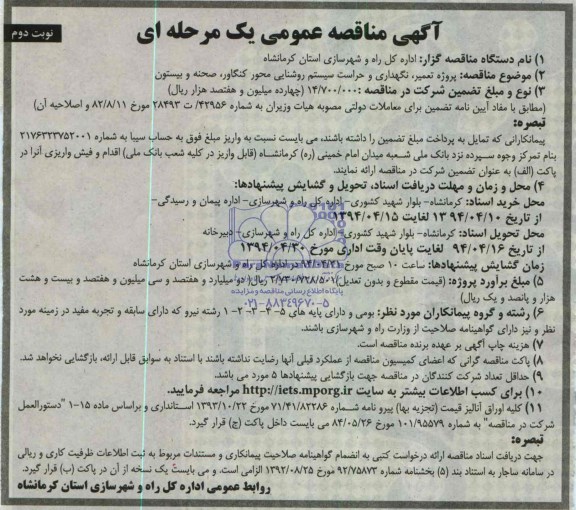 آگهی مناقصه عمومی یک مرحله ای
نوبت دوم
۱) نام دستگاه مناقصه گزار: اداره کل راه و شهرسازی استان کرمانشاه
۲) موضوع مناقصه: پروژه تعمیر، نگهداری و حراست سیستم روشنایی محور کنگاور، صحنه و بیستون
۳) نوع و مبلغ تضمین شرکت در مناقصه: ۱۴/۷۰۰/۰۰۰ (چهارده میلیون و هفتصد هزار ریال)
(مطابق با مفاد آیین نامه تضمین برای معاملات دولتی مصوبه هیات وزیران به شماره ۴۲۹۵۶/ ت ۲۸۴۹۳ مورخ ۸۲/۸/۱۱ و اصلاحیه آن)
تبصره:
پیمانکارانی که تمایل به پرداخت مبلغ تضمین را داشته باشند، می بایست نسبت به واریز مبلغ فوق به حساب سیبا به شماره ۲۱۷۶۳۲۳۷۵۲۰۰۱
بنام تمرکز وجوه سپرده نزد بانک ملی شعبه میدان امام خمینی (ره) کرمانشاه (قابل واریز در کلیه شعب بانک ملی) اقدام و فیش واریزی آنرا در
پاکت (الف) به عنوان تضمین شرکت در مناقصه ارائه نمایند.
۴) محل و زمان و مهلت دریافت اسناد، تحویل و گشایش پیشنهادها:
محل خرید اسناد: کرمانشاه- بلوار شهید کشوری- اداره کل راه و شهرسازی- اداره پیمان و رسیدگی-
از تاریخ ۱۳۹۴/۰۴/۱۰ لغایت ۱۳۹۴/۰۴/۱۵
محل تحویل اسناد: کرمانشاه- بلوار شهید کشوری- اداره کل راه و شهرسازی- دبیرخانه
از تاریخ ۹۴/۰۴/۱۶ لغایت پایان وقت اداری مورخ ۱۳۹۴/۰۴/۳۰
زمان گشایش پیشنهادها: ساعت ۱۰ صبح مورخ ۹۴/۰۴/۳۱ در اداره کل راه و شهرسازی استان کرمانشاه
۵) مبلغ برآورد پروژه: (قیمت مقطوع و بدون تعدیل) ۲/۷۳۰/۷۲۸/۵۰۱ ریال (دو میلیارد و هفتصد و سی میلیون و هفتصد و بیست و هشت
هزار و پانصد و یک ریال)
۶) رشته و گروه پیمانکاران مورد نظر: بومی و دارای پایه های ۵-۴-۳-۲-۱ رشته نیرو که دارای سابقه و تجربه مفید در زمینه مورد
نظر و نیز دارای گواهینامه صلاحیت از وزارت راه و شهرسازی باشند.
۷) هزینه چاپ آگهی بر عهده برنده مناقصه است.
۸) پاکت مناقصه گرانی که اعضای کمیسیون مناقصه از عملکرد قبلی آنها رضایت نداشته باشند با استناد به سوابق قابل ارائه، بازگشایی نخواهد شد.
۹) حداقل تعداد شرکت کنندگان در مناقصه جهت بازگشایی پیشنهادها ۵ مورد می باشد.
۱۰) برای کسب اطلاعات بیشتر به سایت http://iets.mporg.ir مراجعه فرمایید.
۱۱) کلیه اوراق آنالیز قیمت (تجزیه بها) پیرو نامه شماره ۷۱/۴۱/۸۲۲۸۶ مورخ ۱۳۹۳/۱۰/۲۲ استانداری و براساس ماده ۱۵-۱ "دستورالعمل
شرکت در مناقصه" به شماره ۱۰۱/۹۵۵۷۹ مورخ ۸۴/۰۵/۲۶ می بایست داخل پاکت (ج) قرار گیرد.
تبصره:
جهت دریافت اسناد مناقصه ارائه درخواست کتبی به انضمام گواهینامه صلاحیت پیمانکاری و مستندات مربوط به ثبت اطلاعات ظرفیت کاری و ریالی
در سامانه ساجار به استناد بند (۵) بخشنامه شماره ۹۲/۷۵۸۷۳ مورخ ۱۳۹۲/۰۸/۲۵ الزامی است. و می بایست یک نسخه از آن در پاکت (ب) قرار گیرد.
روابط عمومی اداره کل راه و شهرسازی استان کرمانشاه
پایگاه اطلاع رسانی مناقصه و مزایده
۰۲۱-۸۸۳۴۹۶۷۰-۵